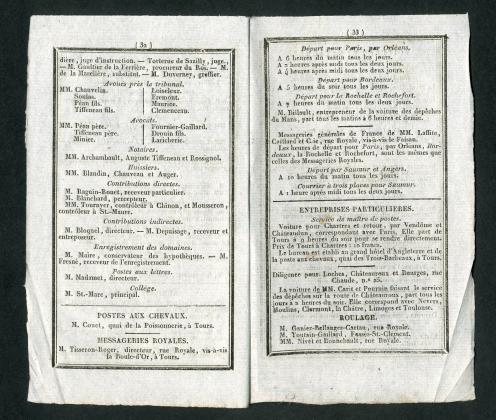 ( 32 )
dière, juge d'instruction. — Torterue de Sazilly, juge,
— M. Gaultier de la Ferrière, procureur du Roi. — M.
de la Mazelière, substitut. — M. Duverney, greffier.
Avoués près le tribunal.
MM. Chauvelin. Loiseleur.
Souias. Fremont.
Péan fils. Maurice.
Tiffeneau fils. Clemenceau.
Avocats.
MM. Péan père. Fournier-Gaillard.
Tiffeneau père. Drouin fils.
Minier. Laricherie.
Notaires.
MM. Archambault, Auguste Tiffeneau et Rossignol.
Huissiers.
MM. Blandin, Chauveau et Auger.
Contributions directes.
M. Raguin-Rouet, receveur particulier.
M. Blanchard, percepteur.
MM. Tournyer, contrôleur à Chinon, et Mousseron,
contrôleur à St.-Maure.
Contributions indirectes.
M. Bloquel, directeur. — M. Depuisage, receveur et
entreposeur.
Enregistrement des domaines.
M. Maire, conservateur des hypothèques. — M.
Fresné, receveur de l'enregistrement.
Postes aux lettres.
M. Madamet, directeur.
Collége.
M. St.-Marc, principal.
POSTES AUX CHEVAUX.
M. Couet, quai de la Poissonnerie, à Tours.
MESSAGERIES ROYALES.
M. Tisseron-Roger, directeur, rue Royale, vis-à-vis
la Boule-d'Or, à Tours.
( 33 )
Départ pour Paris, par Orléans.
A 6 heures du matin tous les jours.
A 2 heures après midi tous les deux jours.
A 4 heures après midi tous les deux jours.
Départ pour Bordeaux.
A 5 heures du soir tous les jours.
Départ pour la Rochelle et Rochefort.
A 7 heures du matin tous les jours.
M. Bidault, entrepreneur de la voiture des dépêches
du Mans, part tous les matins à 6 heures et demie.
Messageries générales de France de MM. Laffitte,
Caillard et C.ie, rue Royale, vis-à-vis le Faisan.
Les heures de départ pour Paris, par Orléans, Bor-
deaux, la Rochelle et Rochefort, sont les mêmes que
celles des Messageries Royales.
Départ par Saumur et Angers.
A 10 heures du matin tous les jours.
Courrier à trois places pour Saumur.
A 1 heure après midi tous les deux jours.
ENTREPRISES PARTICULIERES.
Service de maître de postes.
Voiture pour Chartres et retour, par Vendôme et
Châteaudun, correspondant avec Paris. Elle part de
Tours à 9 heures du soir pour se rendre directement.
Prix de Tours à Chartres : 10 francs.
Le bureau est établi au grand hôtel d'Angleterre et de
la poste aux chevaux, quai des Trois-Barbeaux, à Tours.
Diligence pour Loches, Châteauroux et Bourges, rue
Chaude, n.º 25.
La voiture de MM. Carit et Pourrain faisant le service
des dépêches sur la route de Châteauroux, part tous les
jours à 2 heures du soir. Elle correspond avec Nevers,
Moulins, Clermont, la Châtre, Limoges et Toulouse.
ROULAGE.
M. Ganier-Bellanger-Cartau, rue Royale.
M. Toutain-Gaillard, Fausse-St.-Clément.
MM. Nivet et Bonnebault, rue Royale.